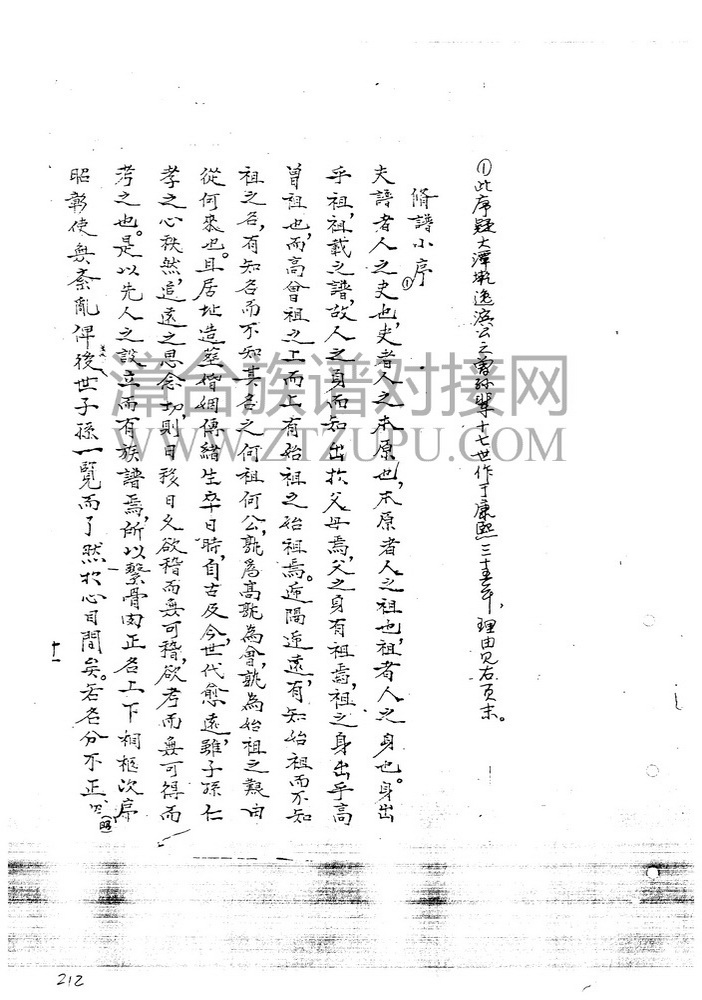 ①此序疑大潭 逸滨公之曾孙辈十七世作于康熙三十五年，理由见右页末。
脩譜小序①
夫譜者人之史也，史者人之本原也，本原者人之祖也，祖者人之身也。身出
乎祖，祖載之譜，故人之身而知出於父母焉，父之身有祖焉，祖之身出乎高
曾祖也，而高曾祖之上而上有始祖之始祖焉。遞隔遞遠，有知始祖而不知
祖之名，有知名而不知其名之何祖何公，孰為高孰為曾，孰為始祖之艱由
從何來也。且居址造塋婚姻傳緒生卒日時，自古及今，世代愈遠，雖子孫仁
孝之心秩然，追遠之思念切，則日移日久欲稽而無可稽，欲考而無可得而
考之也。是以先人之設立而有族譜焉，所以繫骨肉正名上下相樞次序
昭彰使無紊亂俾後世子孫一覽而了然於心目間矣。若名分不正
(昭)
十一
212
漳台族谱对接网
WWW.ZTZUPU.COM